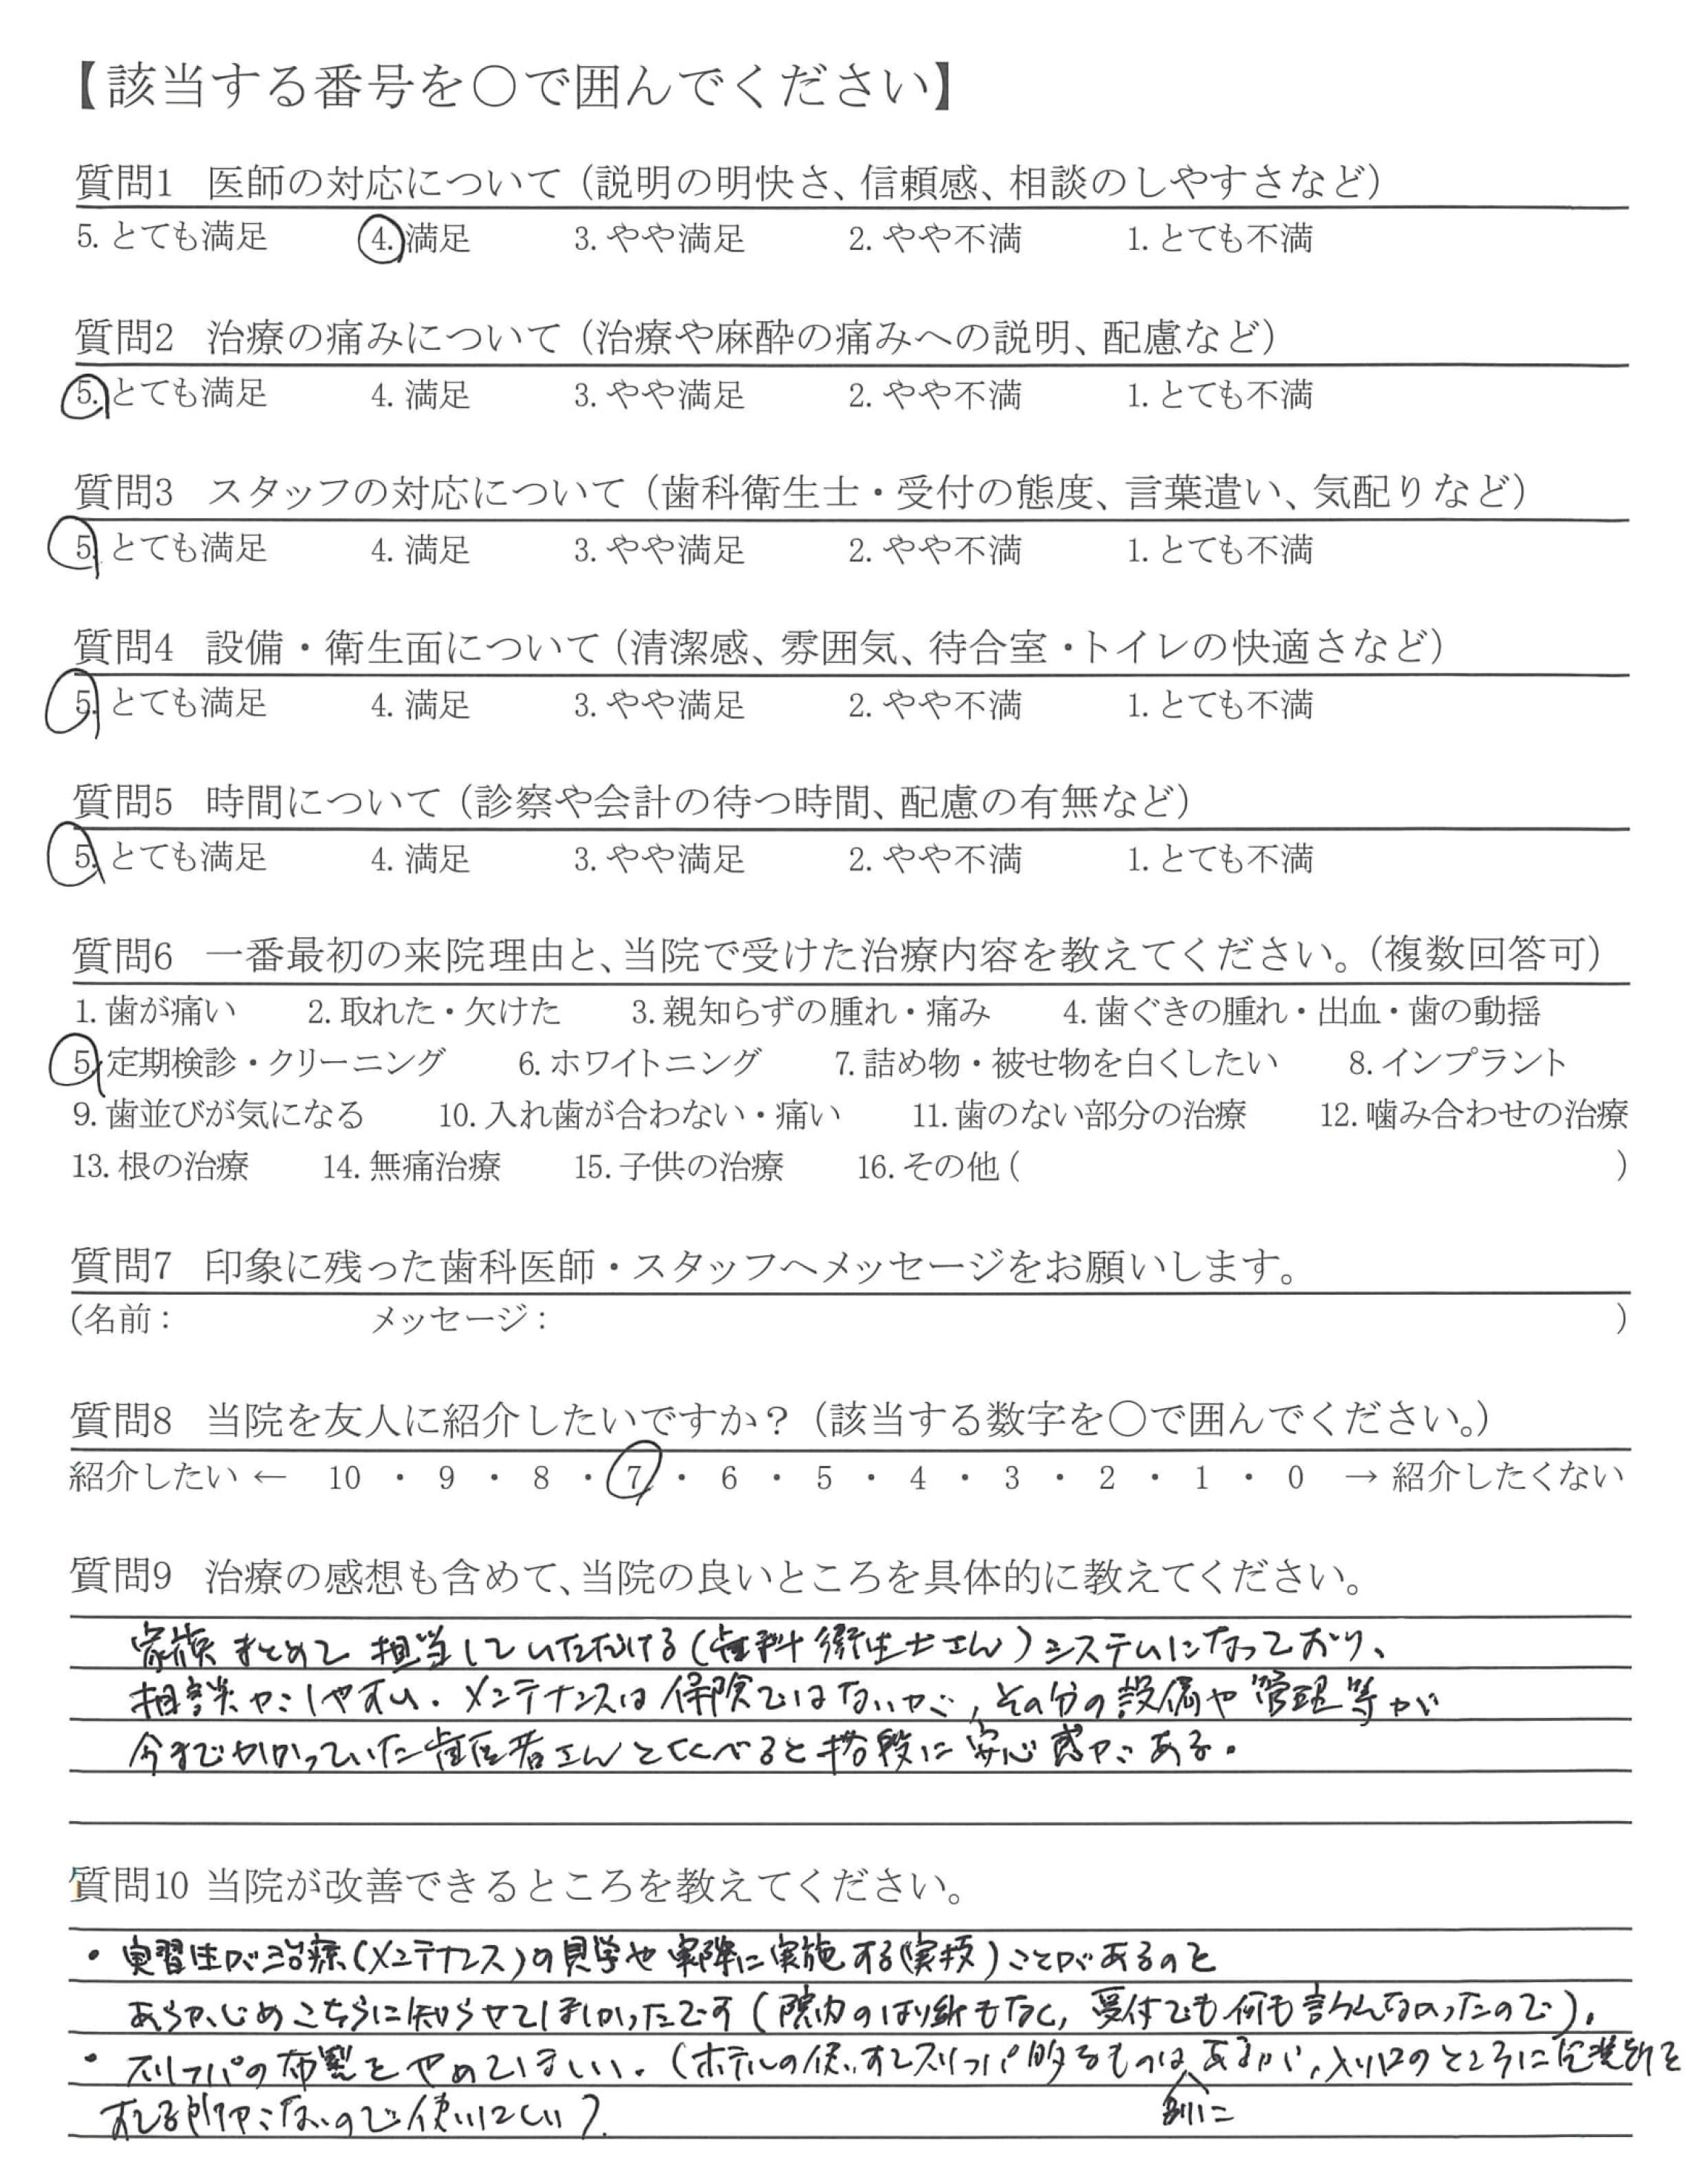 【該当する番号を○で囲んでください】
質問1 医師の対応について（説明の明快さ、信頼感、相談のしやすさなど）
5. とても満足 4. 満足 3. やや満足 2. やや不満 1. とても不満
質問2 治療の痛みについて（治療や麻酔の痛みへの説明、配慮など）
5. とても満足 4. 満足 3. やや満足 2. やや不満 1. とても不満
質問3 スタッフの対応について（歯科衛生士・受付の態度、言葉遣い、気配りなど）
5. とても満足 4. 満足 3. やや満足 2. やや不満 1. とても不満
質問4 設備・衛生面について（清潔感、雰囲気、待合室・トイレの快適さなど）
5. とても満足 4. 満足 3. やや満足 2. やや不満 1. とても不満
質問5 時間について（診察や会計の待つ時間、配慮の有無など）
5. とても満足 4. 満足 3. やや満足 2. やや不満 1. とても不満
質問6 一番最初の来院理由と、当院で受けた治療内容を教えてください。（複数回答可）
1. 歯が痛い 2. 取れた・欠けた 3. 親知らずの腫れ・痛み 4. 歯ぐきの腫れ・出血・歯の動揺
5. 定期検診・クリーニング 6. ホワイトニング 7. 詰め物・被せ物を白くしたい 8. インプラント
9. 歯並びが気になる 10. 入れ歯が合わない・痛い 11. 歯のない部分の治療 12. 噛み合わせの治療
13. 根の治療 14. 無痛治療 15. 子供の治療 16. その他 ( )
質問7 印象に残った歯科医師・スタッフへメッセージをお願いします。
（名前： メッセージ： ）
質問8 当院を友人に紹介したいですか？（該当する数字を○で囲んでください。）
紹介したい ← 10 ・ 9 ・ 8 ・ 7 ・ 6 ・ 5 ・ 4 ・ 3 ・ 2 ・ 1 ・ 0 → 紹介したくない
質問9 治療の感想も含めて、当院の良いところを具体的に教えてください。
家族まとめて担当していただける（歯科衛生士さん）システムになっており、
相談がしやすい。メンテナンスは保険ではないが、その分の設備や管理等が
今までかかっていた歯医者さんとくらべると格段に安心感がある。
質問10 当院が改善できるところを教えてください。
・実習生が治療（メンテナンス）の見学や実際に実施する（実技）ことがあるのを
あらかじめこちらに知らせてほしかったです（院内のはり紙もなく、受付でも何も言われなかったので）。
・スリッパの布製をやめてほしい。（ホテルの使いすてスリッパ的なものは別にあるが、入り口のところに
すてる所がないので使いにくい）